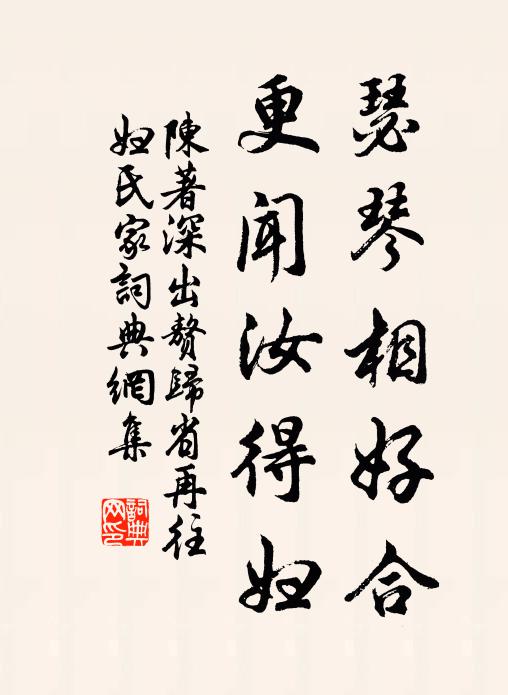 瑟琴相好合
更聞汝得婦
陳著深出贅歸省再往
婦氏家詞典網集
詞典
网印